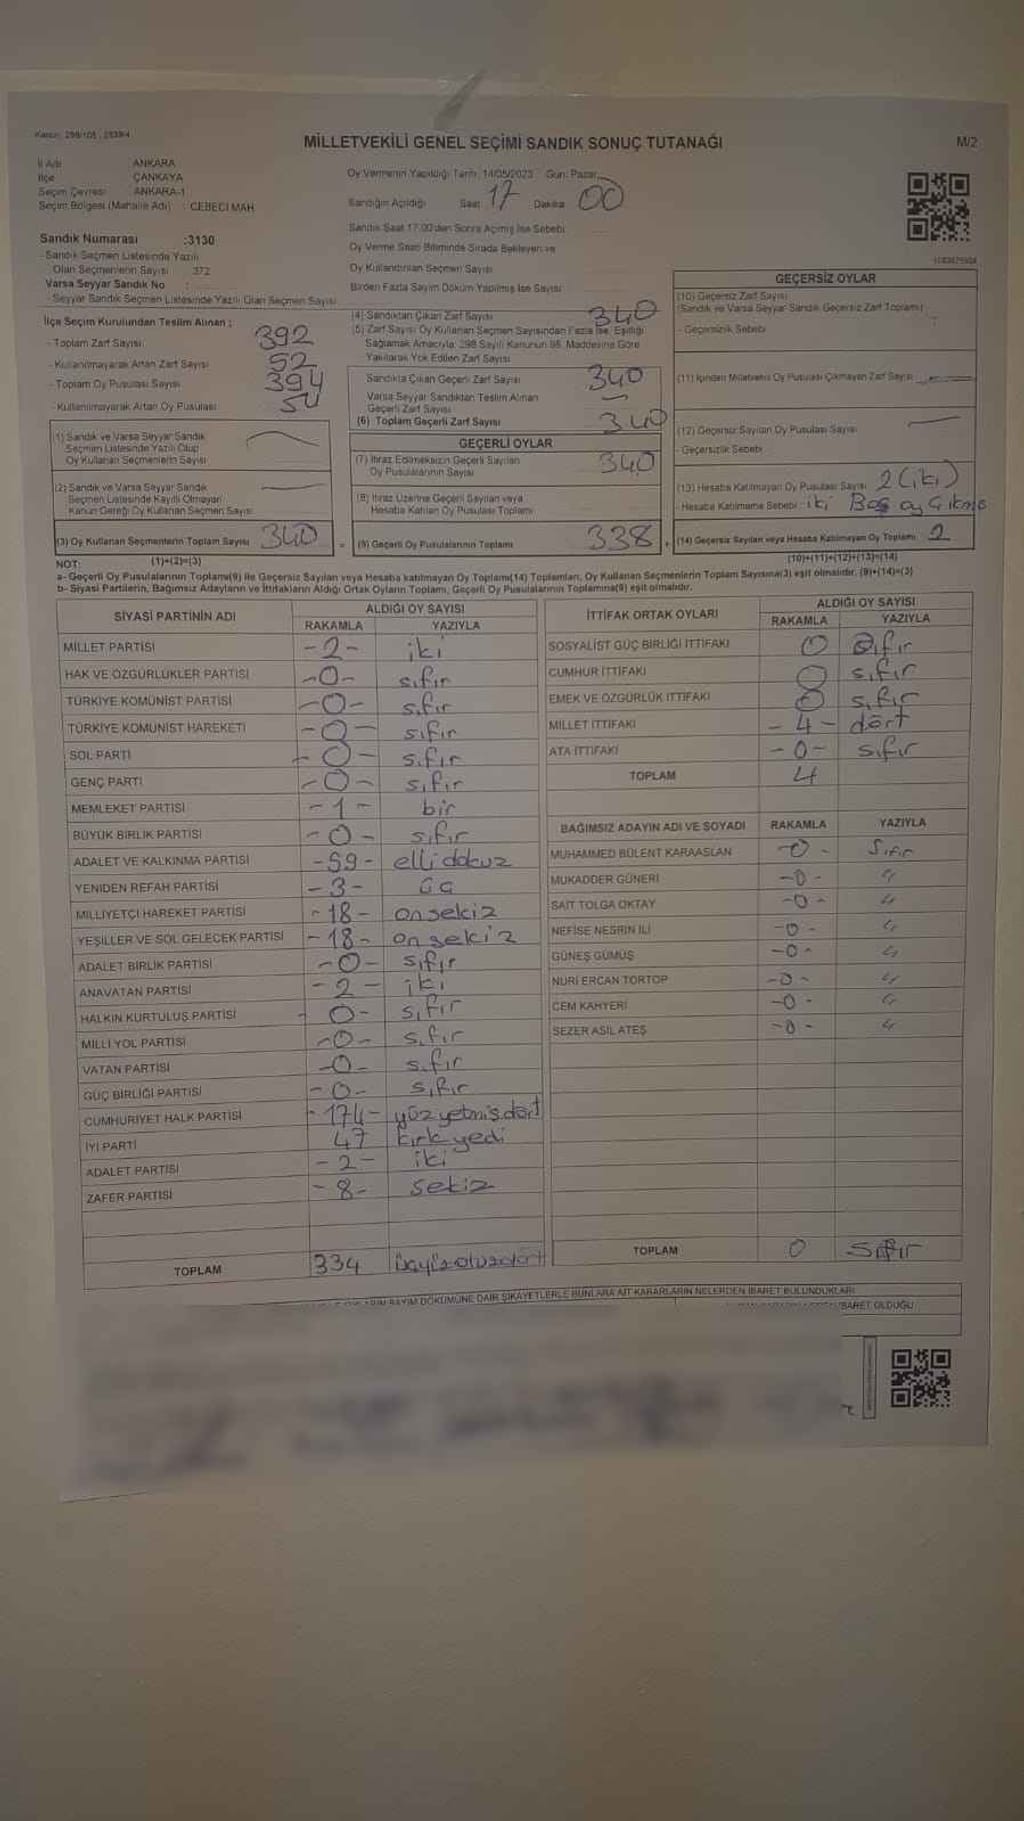 Kanun: 298/105 , 2839/4
MİLLETVEKİLİ GENEL SEÇİMİ SANDIK SONUÇ TUTANAĞI
M/2
İl Adı ANKARA
İlçe ÇANKAYA
Seçim Çevresi ANKARA-1
Seçim Bölgesi (Mahalle Adı) : CEBECİ MAH
Sandık Numarası :3130
- Sandık Seçmen Listesinde Yazılı
Olan Seçmenlerin Sayısı 372
Varsa Seyyar Sandık No :
- Seyyar Sandık Seçmen Listesinde Yazılı Olan Seçmen Sayısı
Oy Vermenin Yapıldığı Tarih: 14/05/2023 Gün: Pazar
Sandığın Açıldığı Saat 17 Dakika 00
Sandık Saat 17.00'den Sonra Açılmış İse Sebebi
Oy Verme Sırası Bitiminde Sırada Bekleyen ve
Oy Kullandırılan Seçmen Sayısı
Birden Fazla Sayım Döküm Yapılmış İse Sayısı
İlçe Seçim Kurulundan Teslim Alınan ;
- Toplam Zarf Sayısı 392
- Kullanılmayarak Artan Zarf Sayısı 52
- Toplam Oy Pusulası Sayısı 394
- Kullanılmayarak Artan Oy Pusulası
(1) Sandık ve Varsa Seyyar Sandık
Seçmen Listesinde Yazılı Olup
Oy Kullanan Seçmenlerin Sayısı
(2) Sandık ve Varsa Seyyar Sandık
Seçmen Listesinde Kayıtlı Olmayan
Kanun Gereği Oy Kullanan Seçmen Sayısı
(3) Oy Kullanan Seçmenlerin Toplam Sayısı 340
(1)+(2)=(3)
(4) Sandıktan Çıkan Zarf Sayısı 340
(5) Zarf Sayısı Oy Kullanan Seçmen Sayısından Fazla İse, Eşitliği
Sağlamak Amacıyla, 298 Sayılı Kanunun 98. Maddesine Göre
Yakılarak Yok Edilen Zarf Sayısı
Sandıkta Çıkan Geçerli Zarf Sayısı 340
Varsa Seyyar Sandıktan Teslim Alınan
Geçerli Zarf Sayısı
(6) Toplam Geçerli Zarf Sayısı 340
GEÇERLİ OYLAR
(7) İtiraz Edilmeksizin Geçerli Sayılan
Oy Pusulalarının Sayısı 340
(8) İtiraz Üzerine Geçerli Sayılan veya
Hesaba Katılan Oy Pusulası Toplamı
(9) Geçerli Oy Pusulalarının Toplamı 338
GEÇERSİZ OYLAR
(10) Geçersiz Zarf Sayısı
(Sandık ve Varsa Seyyar Sandık Geçersiz Zarf Toplamı)
- Geçersizlik Sebebi
(11) İçinden Milletvekili Oy Pusulası Çıkmayan Zarf Sayısı
(12) Geçersiz Sayılan Oy Pusulası Sayısı
- Geçersizlik Sebebi
(13) Hesaba Katılmayan Oy Pusulası Sayısı 2 (iki)
- Hesaba Katılmama Sebebi : iki Boş oy çıkmış
(14) Geçersiz Sayılan veya Hesaba Katılmayan Oy Toplamı 2
(10)+(11)+(12)+(13)=(14)
NOT:
a- Geçerli Oy Pusulalarının Toplamı(9) ile Geçersiz Sayılan veya Hesaba katılmayan Oy Toplamı(14) Toplamları, Oy Kullanan Seçmenlerin Toplam Sayısına(3) eşit olmalıdır. (9)+(14)=(3)
b- Siyasi Partilerin, Bağımsız Adayların ve İttifakların Aldığı Ortak Oyların Toplamı, Geçerli Oy Pusulalarının Toplamına(9) eşit olmalıdır.
SİYASİ PARTİNİN ADI
ALDIĞI OY SAYISI
RAKAMLA YAZIYLA
MİLLET PARTİSİ -2- iki
HAK VE ÖZGÜRLÜKLER PARTİSİ -0- sıfır
TÜRKİYE KOMÜNİST PARTİSİ -0- sıfır
TÜRKİYE KOMÜNİST HAREKETİ -0- sıfır
SOL PARTİ -0- sıfır
GENÇ PARTİ -0- sıfır
MEMLEKET PARTİSİ -1- bir
BÜYÜK BİRLİK PARTİSİ -0- sıfır
ADALET VE KALKINMA PARTİSİ -59- elli dokuz
YENİDEN REFAH PARTİSİ -3- üç
MİLLİYETÇİ HAREKET PARTİSİ -18- on sekiz
YEŞİLLER VE SOL GELECEK PARTİSİ -18- on sekiz
ADALET BİRLİK PARTİSİ -0- sıfır
ANAVATAN PARTİSİ -2- iki
HALKIN KURTULUŞ PARTİSİ -0- sıfır
MİLLİ YOL PARTİSİ -0- sıfır
VATAN PARTİSİ -0- sıfır
GÜÇ BİRLİĞİ PARTİSİ -0- sıfır
CUMHURİYET HALK PARTİSİ -174- yüz yetmiş dört
İYİ PARTİ 47 kırk yedi
ADALET PARTİSİ -2- iki
ZAFER PARTİSİ -8- sekiz
TOPLAM 334 üçyüzotuzdört
İTTİFAK ORTAK OYLARI
ALDIĞI OY SAYISI
RAKAMLA YAZIYLA
SOSYALİST GÜÇ BİRLİĞİ İTTİFAKI 0 sıfır
CUMHUR İTTİFAKI 0 sıfır
EMEK VE ÖZGÜRLÜK İTTİFAKI 0 sıfır
MİLLET İTTİFAKI -4- dört
ATA İTTİFAKI -0- sıfır
TOPLAM 4
BAĞIMSIZ ADAYIN ADI VE SOYADI RAKAMLA YAZIYLA
MUHAMMED BÜLENT KARAASLAN -0- Sıfır
MUKADDER GÜNERİ -0- "
SAİT TOLGA OKTAY -0- "
NEFİSE NESRİN İLİ -0- "
GÜNEŞ GÜMÜŞ -0- "
NURİ ERCAN TORTOP -0- "
CEM KAHYERİ -0- "
SEZER ASİL ATEŞ -0- "
TOPLAM 0 Sıfır
SAYIM DÖKÜMÜNE DAİR ŞİKAYETLERLE BUNLARA AİT KARARLARIN NELERDEN İBARET BULUNDUKLARI
İBARET OLDUĞU